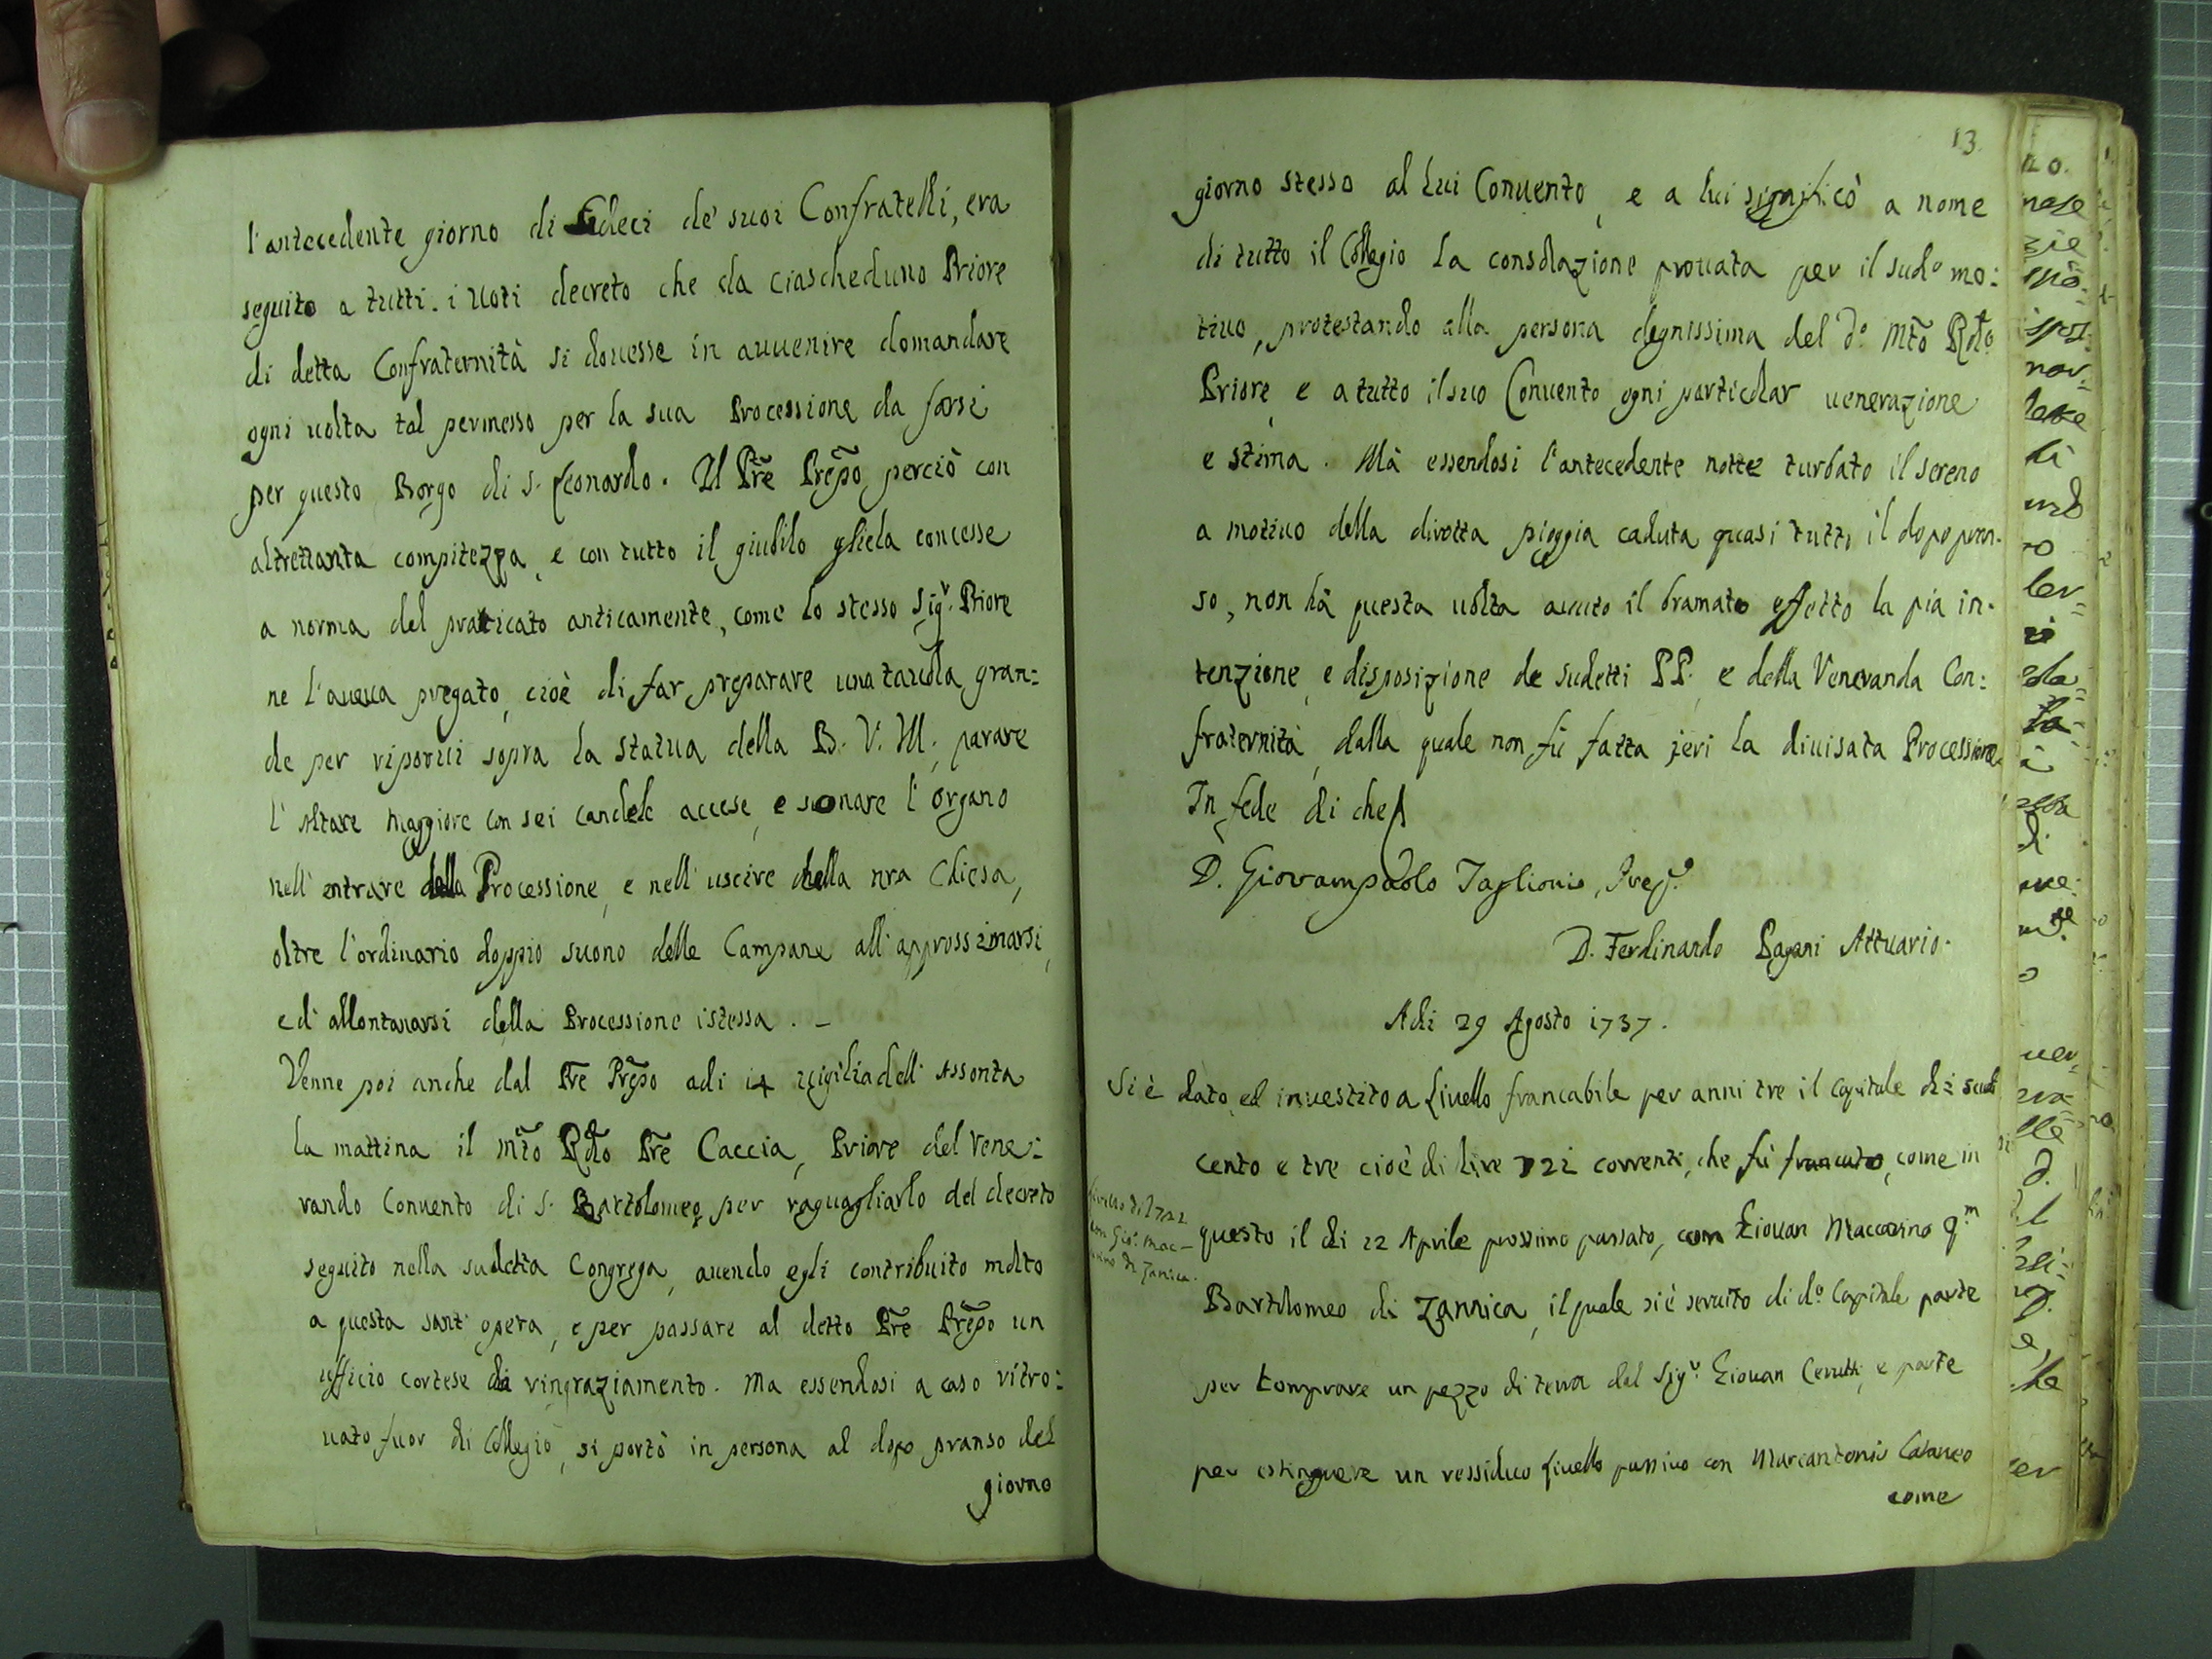 l'antecedente giorno di Sedeci de' suoi Confratelli, era
seguito a tutti i uoti decreto che da ciascheduno Priore
di detta Confraternità si douesse in auuenire domandare
ogni uolta tal permesso per la sua Processione da farsi
per questo Borgo di S. Leonardo. Il Pre Prepo perciò con
altrettanta compitezza, e con tutto il giubilo gliela concesse
a norma del praticato anticamente, come lo stesso Sigr. Priore
ne l'aueua pregato, cioè di far preparare una tauola gran:
de per riporui sopra la statua della B. V. M., parare
l'Altare maggiore con sei candele accese, e suonare l'organo
nell'entrare della Processione, e nell'uscire della nra Chiesa,
oltre l'ordinario doppio suono delle Campane all'approssimarsi,
ed allontanarsi della Processione istessa. -
Venne poi anche dal Pre Prepo adi 14 uigilia dell'Assonta
la mattina il mto Rdo Pre Caccia, Priore del Vene:
rando Conuento di S. Bartolomeo per raguagliarlo del decreto
seguito nella sudetta Congrega, auendo egli contribuito molto
a questa sant'opera, e per passare al detto Pre Prepo un
ufficio cortese di ringraziamento. Ma essendosi a caso ritro:
uato fuor di Collegio, si portò in persona al dopo pranso del
giorno
13.
giorno stesso al Lui Conuento, e a lui significò a nome
di tutto il Collegio la consolazione prouata per il sudo mo:
tiuo, protestando alla persona degnissima del do. Mto Rdo.
Priore, e a tutto il suo Conuento ogni particolar uenerazione
e stima. Mà essendosi l'antecedente notte turbato il sereno
a motiuo della dirotta pioggia caduta quasi tutto il dopo pran-
so, non hà questa uolta auuto il bramato effetto la pia in-
tenzione, e disposizione de sudetti PP. e della Veneranda Con:
fraternità, dalla quale non fù fatta jeri la diuisata Processione.
In fede di che
D. Giovampaolo Taglionis, Prepo.
D. Ferdinando Pagani Attuario.
Adi 29 Agosto 1737.
Si è dato, ed inuestito a liuello francabile per anni tre il capitale di scudi
cento e tre cioè di lire 721 correnti, che fù francato, come in
liuello di l 721
con Gio: Mac-
carino di Zanica.
questo il di 22 Aprile prossimo passato, con Giouan Maccarino qm
Bartolomeo di Zannica, il quale si è seruito di do. Capitale parte
per comprare un pezzo di terra dal Sigr. Giouan Cerutti, e parte
per estinguere un ressiduo liuello passiuo con Marcantonio Cataneo
come